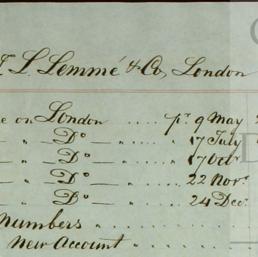 L Lemmé & Co, London
e on London .... pr. 9 May
" " Do .... " 17 July
" " Do .... " 17 Octr
" " Do .... " 22 Novr
" " Do .... " 24 Decr
Numbers " " " "
New Account " " " "